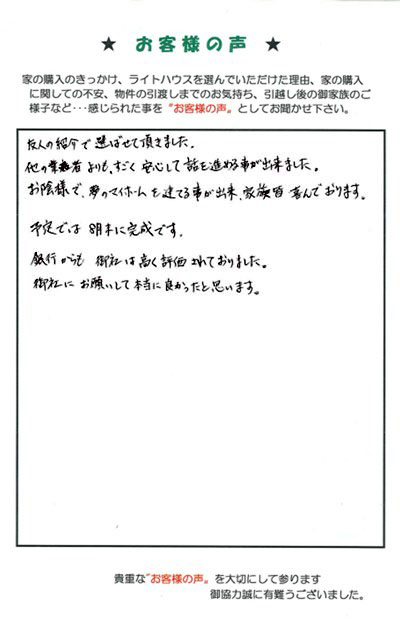 ★ お客様の声 ★
家の購入のきっかけ、ライトハウスを選んでいただけた理由、家の購入
に関しての不安、物件の引渡しまでのお気持ち、引越し後の御家族のご
様子など･･･感じられた事を〝お客様の声〟としてお聞かせ下さい。
友人の紹介で選ばせて頂きました。
他の業者よりも、すごく安心して話を進める事が出来ました。
お陰様で、夢のマイホームを建てる事が出来、家族皆喜んでおります。
予定では8月末に完成です。
銀行からも御社は高く評価されておりました。
御社にお願いして本当に良かったと思います。
貴重な〝お客様の声〟を大切にして参ります
御協力誠に有難うございました。